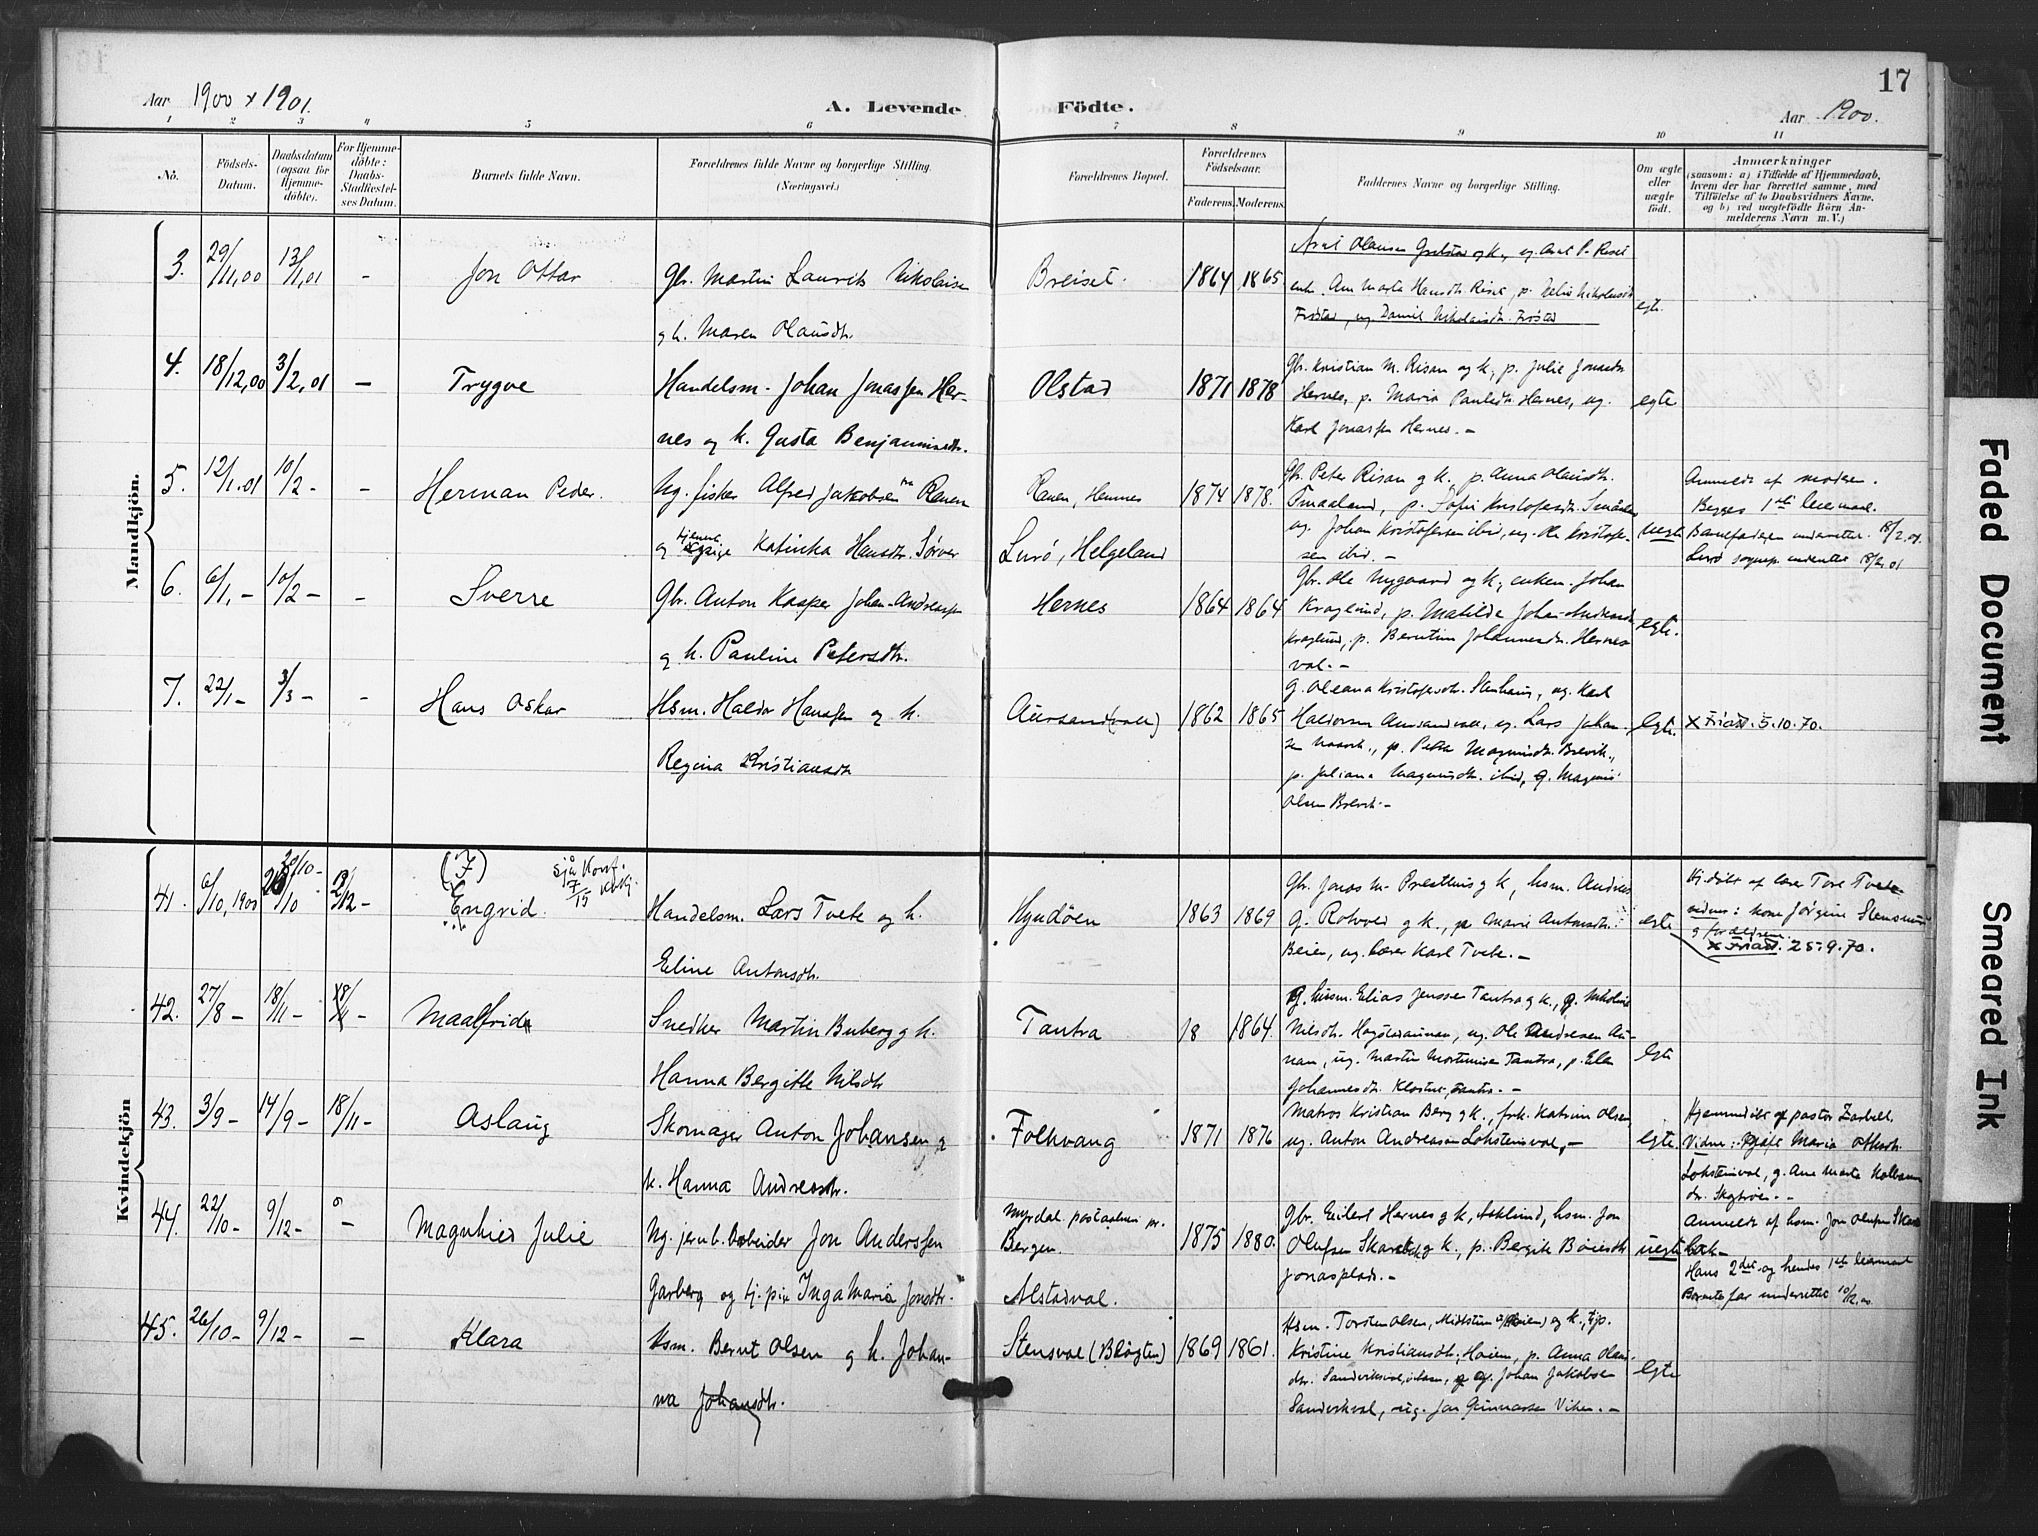 17
Aar 1900 + 1901.
A. Levende Födte.
Aar 1900.
1 2 3 4 5 6 7 8 9 10 11
No.
Födsels-
Datum.
Daabsdatum
(ogsaa for
Hjemme-
döbte).
For Hjemme-
döbte:
Daabs-
Stadfæstel-
ses Datum.
Barnets fulde Navn.
Forældrenes fulde Navne og borgerlige Stilling
(Næringsvei.)
Forældrenes Bopæl.
Forældrenes
Födselsaar.
Faderens. Moderens.
Faddernes Navne og borgerlige Stilling.
Om ægte
eller
uægte
födt.
Anmærkninger
(saasom: a) i Tilfælde af Hjemmedaab,
hvem der har forrettet samme, med
Tilföielse af to Daabsvidners Navne.
og b) ved uægtefödte Börn An-
melderens Navn m. V.)
Mandkjön.
3. 29/11,00 13/1,01 - Jon Ottar
Gbr. Martin Laurits Nikolaisen
og h. Maren Olausdtr.
Breiset. 1864 1865
egte.
4. 18/12,00 3/2,01 - Trygve
Handelsm. Johan Jonassen Her-
nes og h. Gusta Benjaminsdtr.
Olstad 1871 1878
Gbr. Kristian M. Risan og k, p. Julie Jonasdtr
Hernes, p. Maria Paulsdtr. Hernes, ug.
Karl Jonassen Hernes. -
egte
5. 12/1.01 10/2 - - Herman Peder.
Ug. fisker Alfred Jakobsen fra Ranen
og pige Katinka Hansdtr. Sörver
Ranen, Hemnes
Lurö, Helgeland
1874 1878.
Gbr. Peter Risan og k., p. Anna Olausdtr.
Smaaland, p. Sofie Kristofersdtr.
ug. Johan Kristofersen ibid, ug. Ole Kristofer-
sen ibid. -
uegte
Anmeldt af moderen.
Begges 1ste leiermaal.
Barnefaderen underrettet 18/2.01.
Lurö sognep. underrettet 18/2.01
6. 6/1,- 10/2 - - Sverre
Gbr. Anton Kasper Johan-Andreassen
og h. Pauline Petersdtr.
Hernes 1864 1864
Gbr. Ole Nygaard og k; enken Johan
Kraglund, p. Matilde Johan-Andreasdtr
Kraglund, p. Berntine Johannesdtr. Hernes-
val. -
egte.
7. 22/1- 3/3 - - Hans Oskar
Hsm. Haldor Hanssen og h.
Regina Kristiansdtr
Aursand(val) 1862 1865
g. Oleana Kristofersdtr. Stenhaug, ug. Karl
Haldorsen Aursandval, ug. Lars Johan-
sen, p. Petra Magnusdtr. Brevik.,
p. Juliana Magnusdtr. ibid, g. Magnus
Olsen Brevik. -
egte. X Fraad. 5.10.70.
Kvindekjön
41. 6/10,1900 28/10 2/12 - (F) Engrid. Sjå Konf. 7/15 Kbkj.
Handelsm. Lars Tvete og h.
Eline Antonsdtr.
Hyndöen 1863 1869
Gbr. Jonas M. Presthus og k, hsm. Andreas
G. Rotvold og k., p. Marie Antonsdtr.
Beien, ug. lærer Karl Tvete. -
egte
Hj.döbt af lærer Tore Tvete
vidner: kone Jörgine Stensmo
og foreldrene.
X Fraad. 25.9.70.
42. 27/8 - 18/11 - 18/11 - Maalfrid
Snedker Martin Buberg og h.
Hanna Bergitte Nilsdtr
Tautra 18 1864.
g. husm. Elias Jenssen Tautra og k., g. Nikoline
Nilsdtr. Hogstadaunan, ug. Ole Andreasen Au-
nan, ug. Martin Mortensen Tautra, p. Elen
Johannesdtr. Klostret, Tautra. -
egte
43. 3/9 - 14/9 - 18/11 - Aslaug
Skomager Anton Johansen og
h. Hanna Andreasdtr.
Folkvang 1871 1876
Matros Kristian Berg og k., frk. Katrine Olsen
ug. Anton Andreasen Lohstensval, -
egte.
Hjemmedöbt af pastor Zarbell.
Vidner: Maria Ottersdtr.
Lohstenval, g. Ane Marta Kolbanus-
dtr. Skogtröen. -
44. 22/10 - 9/12 - - Magnhild Julie
Ug. jernb. Arbeider Jon Anderssen
Garberg og tj. pike Inga Maria Jonsdtr.
Myrdal postaabneri pr.
Bergen.
Alstadval.
1875 1880.
Gbr. Eilert Hernes og k, Asklund, hsm. Jon
Olufsen Skarebak og k., p. Bergitte Böiesdtr
Jonasplads. -
uegte
Anmeldt af hsm. Jon Olufsen Skare-
bak -
Hans 2det og hendes 1ste leiermaal
Barnets far underrettet 10/12.00
45. 26/10 - 9/12 - - Klara
Hsm. Bernt Olsen og h. Johan-
na Johansdtr.
Stensval (Blögten) 1869 1861.
Hsm. Torsten Olsen, og k., tjp.
Kristine Kristiansdtr, Höien, p. Anna Olaus-
dtr. g. Johan Jakobsen
Sandvikval, ug. Jon Gunnarssen Viken. -
egte
Faded Document
Smeared Ink